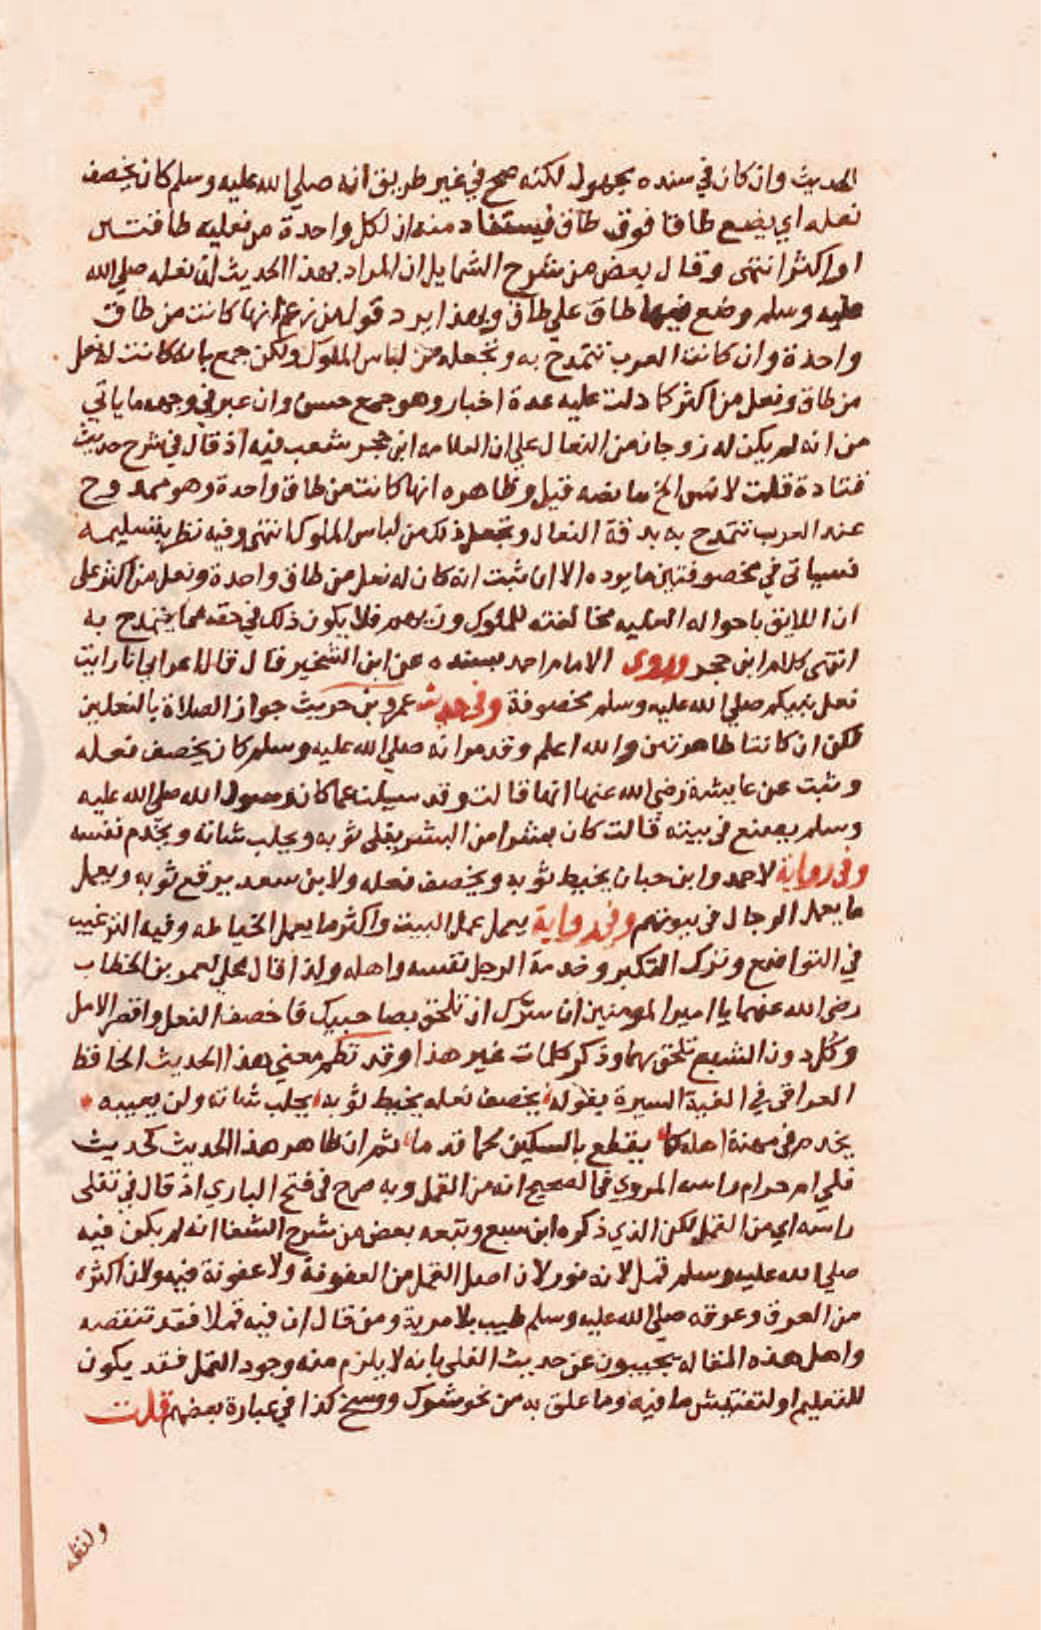 الحديث وان كان في سنده مجهول لكنه صح في غير طريق انه صلي الله عليه وسلم كان يخصف
نعله اي يضع طاقا فوق طاق فيستفاد منه ان لكل واحدة من نعليه طاقتين
او اكثر انتهى وقال بعض من شرح الشمايل ان المراد بهذا الحديث ان نعله صلي الله
عليه وسلم وضع فيها طاق علي طاق وبهذا يرد قول من زعم انها كانت من طاق
واحدة وان كانت العرب تتمدح به وتجعله من لباس الملوك ولكن جمع بانه كانت له نعل
من طاق ونعل من اكثر كما دلت عليه عدة اخبار وهو جمع حسن وان عبر في وجهه ما ياتي
من انه لم يكن له زوجان من النعال علي ان العلامه ابن حجر شعب فيه اذ قال في شرح حديث
قتادة قلت لانس الخ ما نصه قيل وظاهره انها كانت من طاق واحدة وهو ممدوح
عند العرب تتمدح به بدقة النعال وتجعل ذلك من لباس الملوك انتهى وفيه نظر بتسليمه
فسياتي في مخصوفتين ما يرده الا ان ثبت انه كان له نعل من طاق واحدة ونعل من اكثر علي
ان اللايق باحواله العليه مخالفته للملوك فلا يكون ذلك في حقه مما يتمدح به
انتهى كلام ابن حجر وروى الامام احمد بسنده عن ابن الشخير قال قال اعرابي انا رايت
نعل نبيكم صلي الله عليه وسلم مخصوفة وفي حديث عمرو بن حريث جواز الصلاة بالنعلين
لكن ان كانتا طاهرتين والله اعلم وقدموا نه صلي الله عليه وسلم كان يخصف نعله
وثبت عن عايشة رضي الله عنها انها قالت وقد سيلت عما كان رسول الله صلي الله عليه
وسلم يصنع في بيته قالت كان بشرا من البشر يفلي ثوبه ويحلب شاته ويخدم نفسه
وفي رواية لاحمد وابن حبان يخيط ثوبه ويخصف نعله ولابن سعد يرقع ثوبه ويعمل
ما يعمل الرجال في بيوتهم وفي رواية يعمل عمل البيت واكثر ما يعمل الخياطه وفيه الترغيب
في التواضع وترك التكبر وخدمة الرجل نفسه واهله ولذا قال علي لعمر بن الخطاب
رضي الله عنهما يا امير المومنين ان سرك ان تلحق بصاحبيك فاخصف النعل واقصر الامل
وكل دون الشبع تلحق بهما وذكر كلمات غير هذا وقد نظم معني هذا الحديث الحافظ
العراقي في الفية السيرة بقوله يخصف نعله يخيط ثوبه يحلب شاته ولن يعيبه
يخدم في مهنة اهله كما يقطع بالسكين لحما قدما ثم ان ظاهر هذا الحديث كحديث
فلي ام حرام راسه المروي في الصحيح انه من القمل وبه صرح في فتح الباري اذ قال في تفلى
راسه اي من القمل لكن الذي ذكره ابن سبع وتبعه بعض من شرح الشفا انه لم يكن فيه
صلي الله عليه وسلم قمل لانه نور لان اصل القمل من العفونة ولا عفونة فيه ولان اكثره
من العرق وعرقه صلي الله عليه وسلم طيب بلا مرية ومن قال ان فيه قملا فقد تنقصه
واهل هذه المقاله يجيبون عن حديث الفلي بانه لا يلزم منه وجود القمل فقد يكون
للتعليم او لتفتيش ما فيه وما علق به من نحو شوك ووسخ كذا في عبارة بعضهم قلت
ولفظه